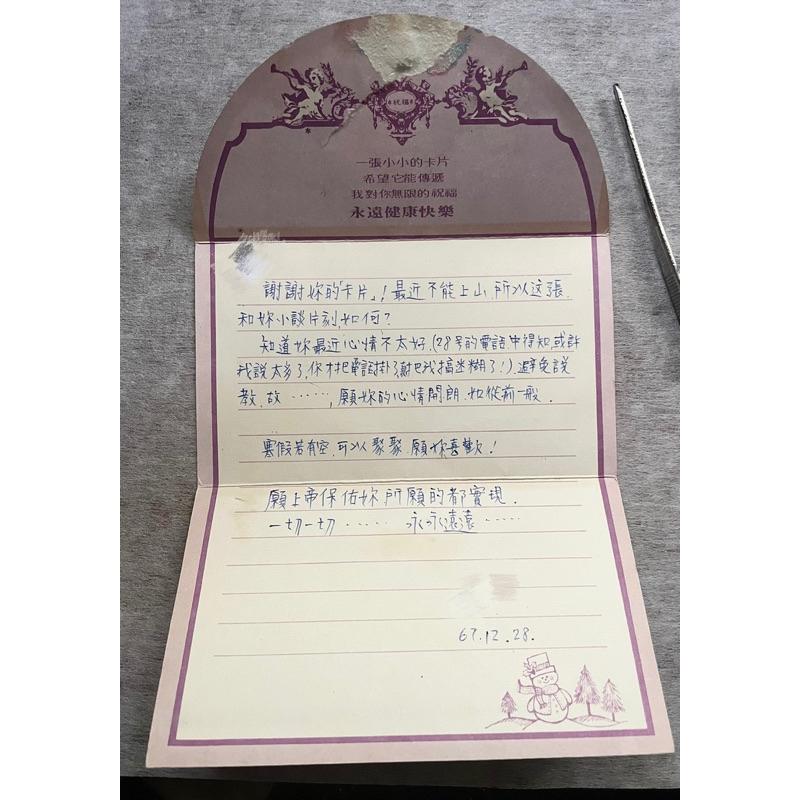 祝福
一張小小的卡片
希望它能傳遞
我對你無限的祝福
永遠健康快樂
謝謝妳的卡片！最近不能上山,所以这張,
和妳小談片刻如何？
知道妳最近心情不太好,(28号的電話中得知,或許
我說太多了,你才把電話掛了,就把我搞迷糊了！),避免說
教,故……,願妳的心情開朗,如從前一般.
寒假若有空,可以聚聚,願妳喜歡！
願上帝保佑妳所願的都實現.
一切一切…… 永永遠遠……
67.12.28.